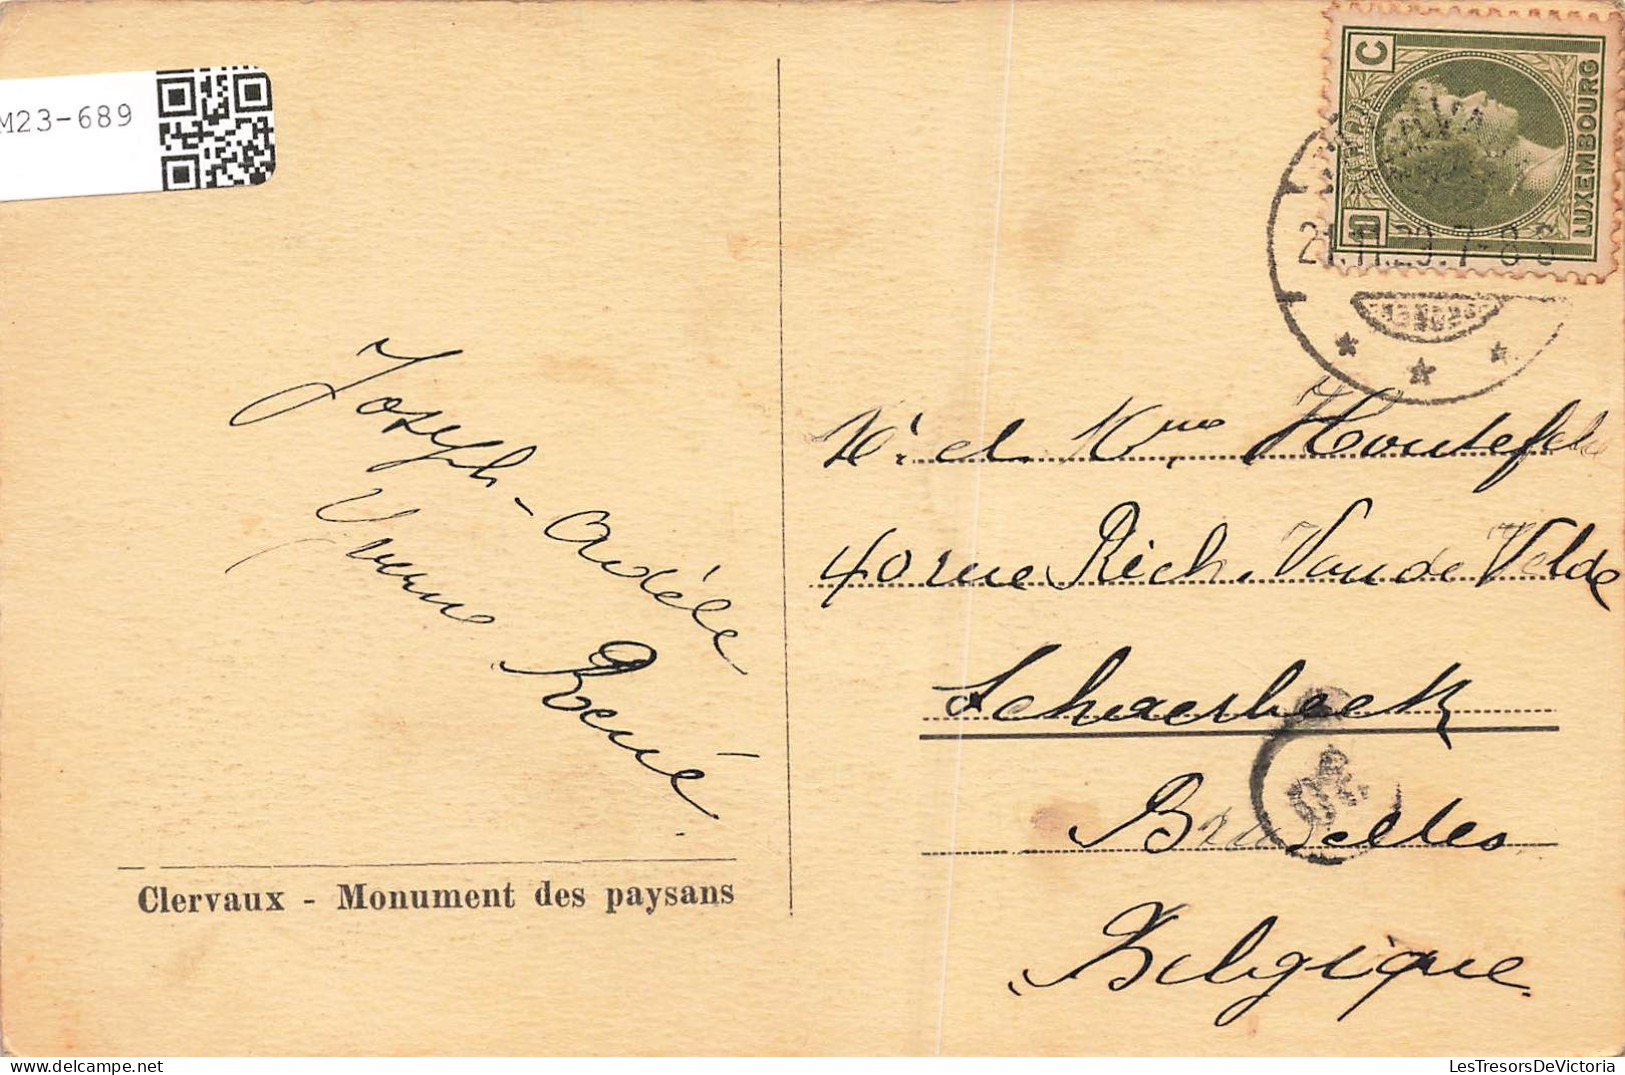 M23-689
10 C
LUXEMBOURG
21.11.29.7-8 S
Joseph-Adèle
Yvonne René.
Mr. et Mme Houtef
40 rue Rich. Van de Velde
Schaerbeek
Bruxelles
Belgique.
Clervaux - Monument des paysans
LesTresorsDeVictoria